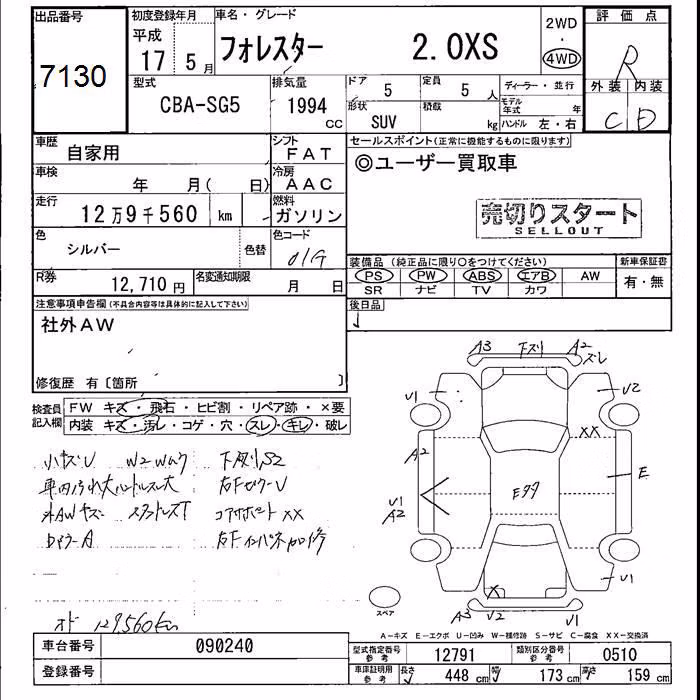 出品番号
7130
初度登録年月
平成
17 5月
車名・グレード
フォレスター 2.0XS
2WD
・
4WD
評価点
R
外装 内装
C D
型式
CBA-SG5
排気量
1994
CC
ドア
5
定員
5 人
形状
SUV
積載
kg
ディーラー・並行
モデル年式 年
ハンドル 左・右
車歴
自家用
シフト
FAT
車検
年 月( 日)
冷房
AAC
走行
12万9千560 km
燃料
ガソリン
色
シルバー
色替
色コード
01G
R券
12,710円
名変通知期限
月 日
セールスポイント(正常に機能するものに限ります)
◎ユーザー買取車
売切りスタート
SELLOUT
装備品 (純正品に限り○をつけてください)
PS PW ABS エアB AW
SR ナビ TV カワ
新車保証書
有・無
後日品
注意事項申告欄(不具合内容等は具体的に記入して下さい)
社外AW
修復歴 有〔箇所 〕
検査員
記入欄
FW キズ・飛石・ヒビ割・リペア跡・×要
内装 キズ・汚レ・コゲ・穴・スレ・キレ・破レ
小キズU W2 下廻りS2
車内汚れ大ハンドルスレ大
外AWキズ コアサポートXX
A
129,560km
A3 下スリ A2
スレ
U1
U2
XX
A2
E
U1
A2
Eタタ
X
U1
A3 U2 U1
スペア
A-キズ E-エクボ U-凹み W-補修跡 S-サビ C-腐食 XX-交換済
車台番号
090240
登録番号
型式指定番号
参考
12791
類別区分番号
参考
0510
車庫証明用
参考
長さ 448 cm
幅 173 cm
高さ 159 cm